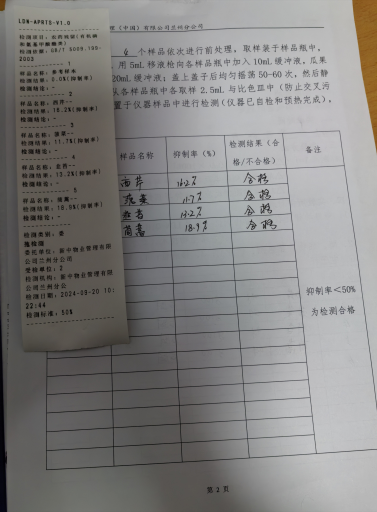 LDN-APRTD-V1.0
检测依据: GB/T 5009.199-
2003
1
样品名称: 参考样本
检测结果: 0.0%(抑制率)
检测结论: -
2
样品名称: 西芹--
检测结果: 16.2%(抑制率)
检测结论: -
3
样品名称: 菠菜--
检测结果: 11.7%(抑制率)
检测结论: -
4
检测结果: 13.2%(抑制率)
检测结论: -
5
检测结果: 18.9%(抑制率)
检测结论: -
检测类别: 委
委托单位: 新中物业管理有限
公司兰州分公司
受检单位: 2
检测机构: 新中物业管理有限
公司兰州分公
检测日期: 2024-09-20 10:
22:44
检测标准: 50%
(中国)有限公司兰州分公司
个样品依次进行前处理,取样装于样品瓶中。
用5mL移液枪向各样品瓶中加入10mL缓冲液,瓜果
20mL缓冲液;盖上盖子后均匀摇荡50-60次,然后静
从各样品瓶中各取样2.5mL与比色皿中(防止交叉污
置于仪器样品中进行检测(仪器已自检和预热完成)。
样品名称 抑制率(%) 检测结果(合格/不合格) 备注
西芹 16.2% 合格
菠菜 11.7% 合格
13.2% 合格
18.9% 合格
抑制率<50%
为检测合格
第2页